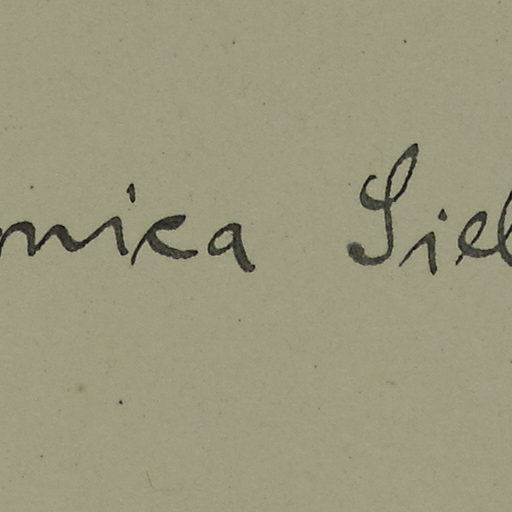 nica Siel